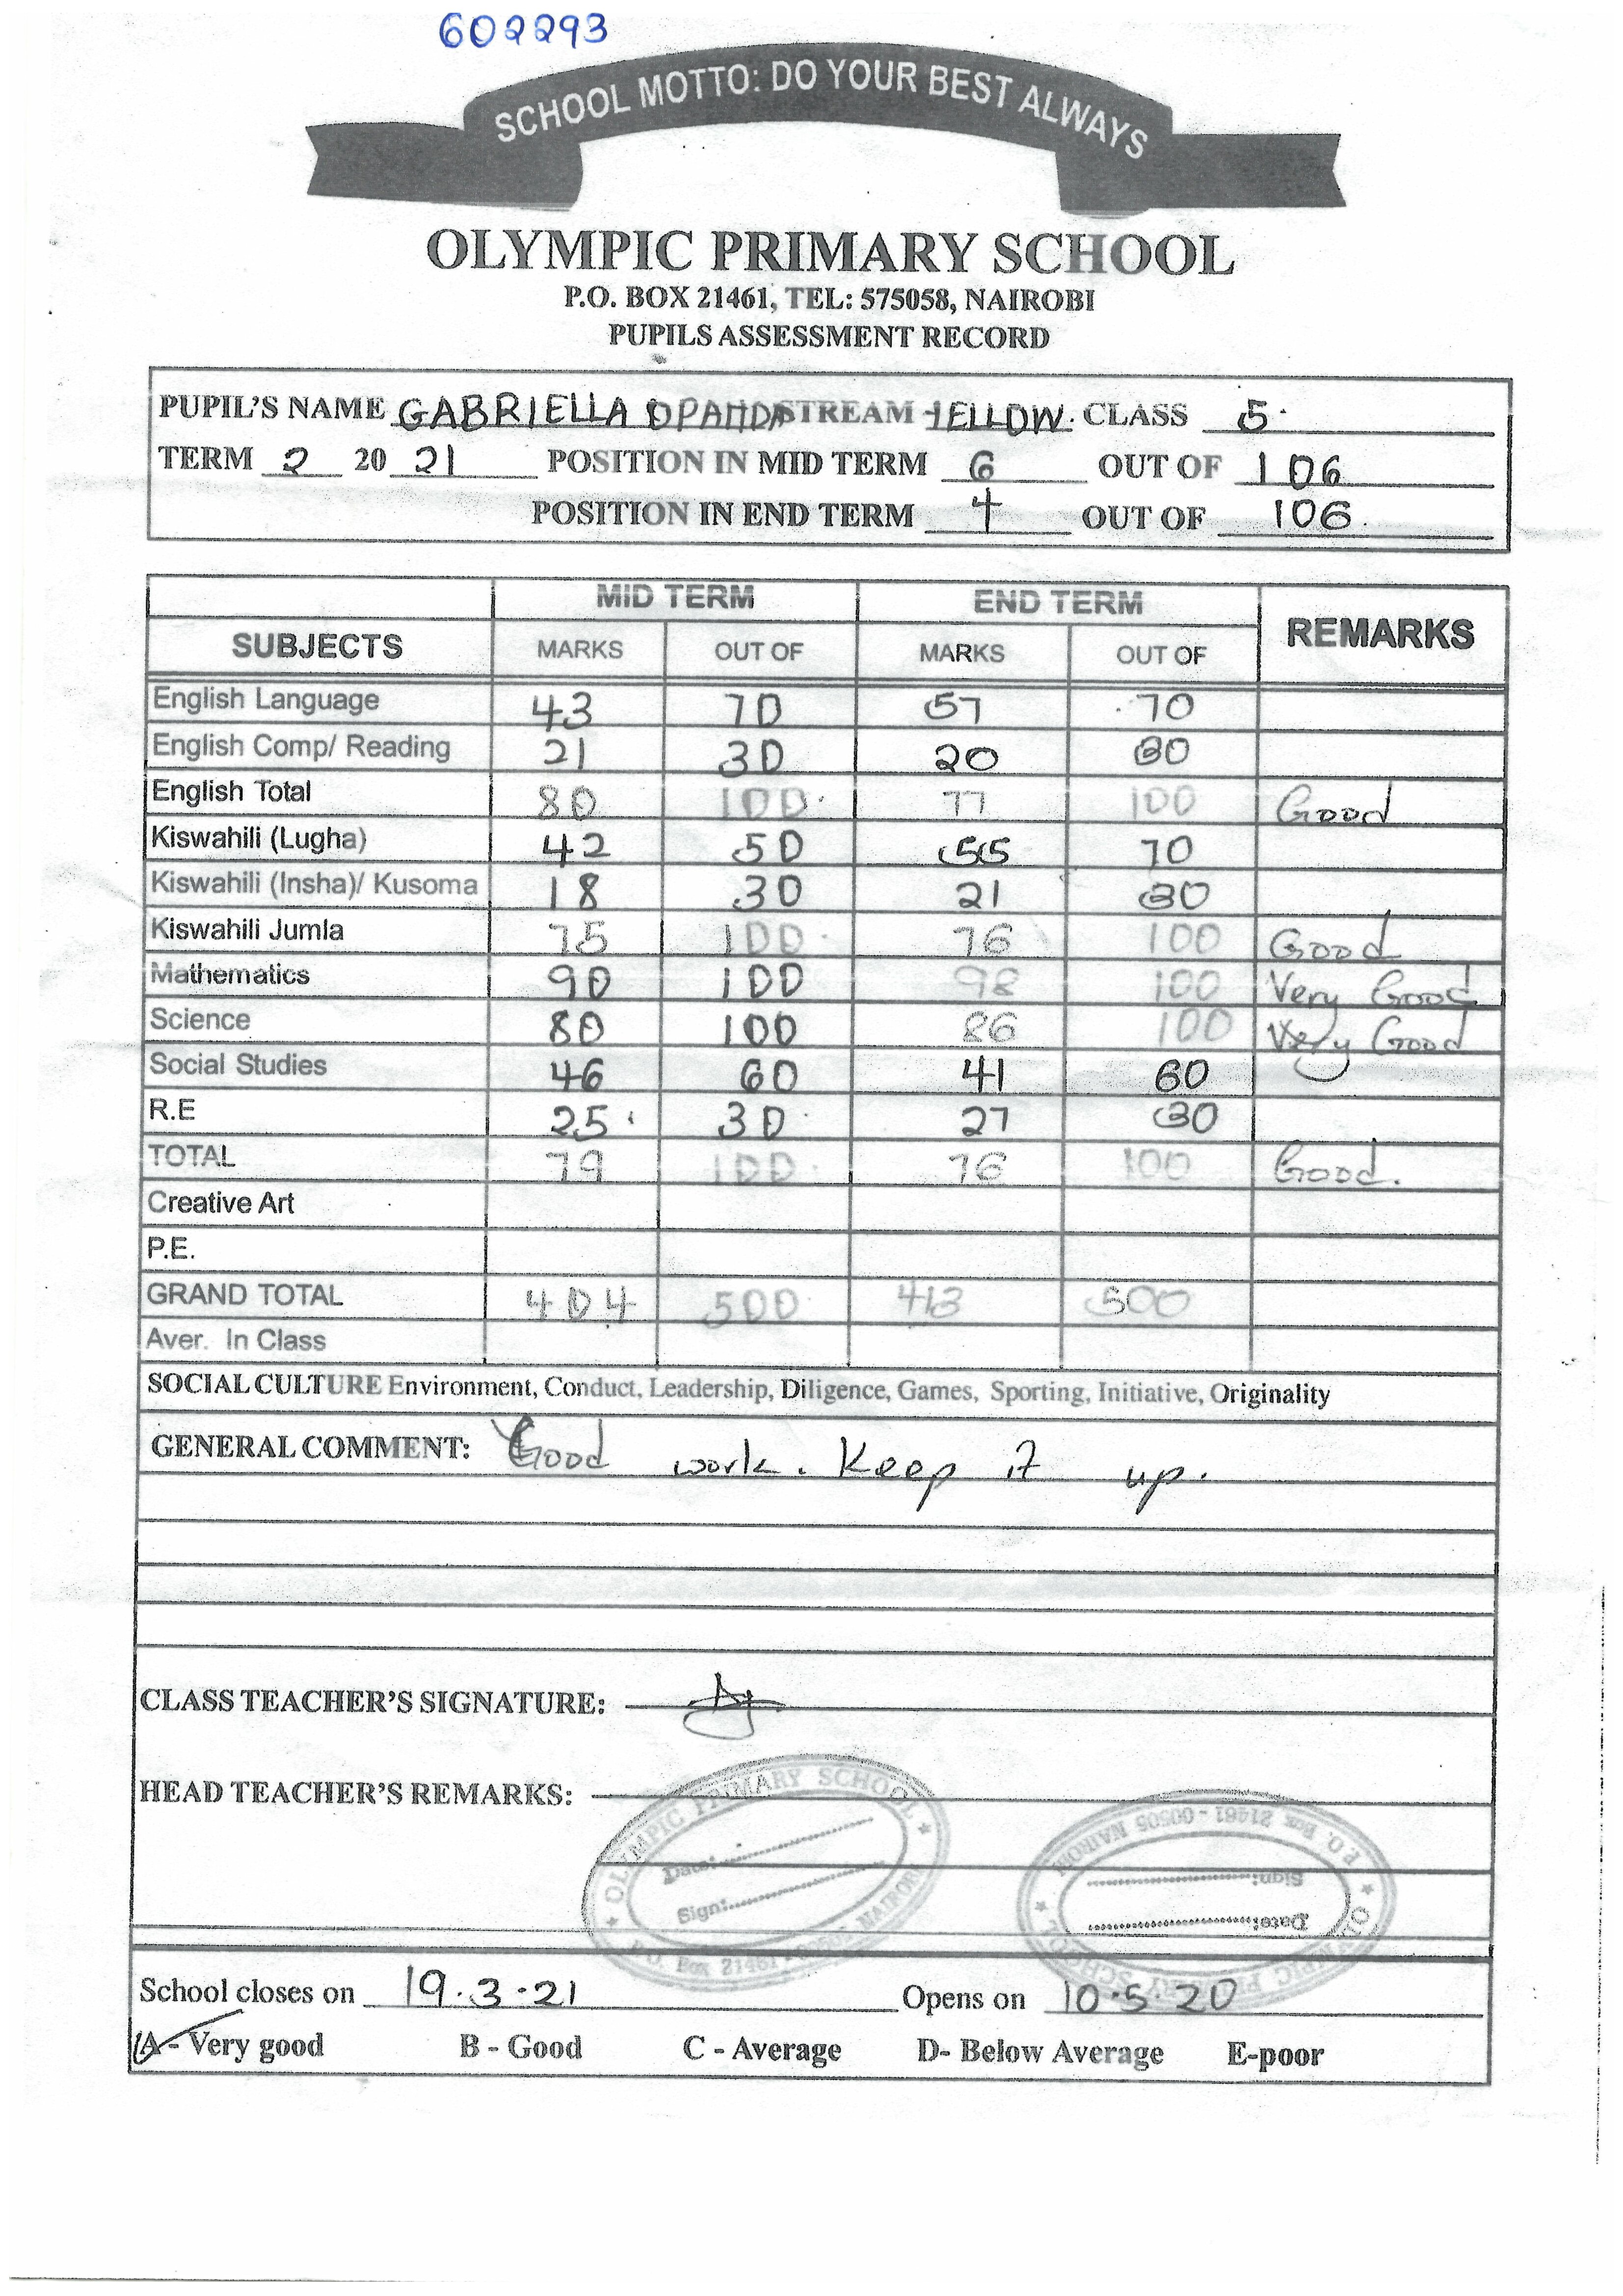 602293
SCHOOL MOTTO: DO YOUR BEST ALWAYS
OLYMPIC PRIMARY SCHOOL
P.O. BOX 21461, TEL: 575058, NAIROBI
PUPILS ASSESSMENT RECORD
PUPIL'S NAME GABRIELLA OPANDA STREAM YELLOW. CLASS 5.
TERM 2 20 21 POSITION IN MID TERM 6 OUT OF 106
POSITION IN END TERM 4 OUT OF 106.
MID TERM END TERM REMARKS
SUBJECTS MARKS OUT OF MARKS OUT OF
English Language 43 70 57 70
English Comp/ Reading 21 30 20 30
English Total 80 100 77 100 Good
Kiswahili (Lugha) 42 50 55 70
Kiswahili (Insha)/ Kusoma 18 30 21 30
Kiswahili Jumla 75 100 76 100 Good
Mathematics 90 100 98 100 Very Good
Science 80 100 86 100 Very Good
Social Studies 46 60 41 60
R.E 25 30 27 30
TOTAL 79 100 76 100 Good.
Creative Art
P.E.
GRAND TOTAL 404 500 413 500
Aver. In Class
SOCIAL CULTURE Environment, Conduct, Leadership, Diligence, Games, Sporting, Initiative, Originality
GENERAL COMMENT: Good work. Keep it up.
CLASS TEACHER'S SIGNATURE:
HEAD TEACHER'S REMARKS:
OLYMPIC PRIMARY SCHOOL
Date:
Sign:
P.O. Box 21461 - 00505 NAIROBI
OLYMPIC PRIMARY SCHOOL
Date:
Sign:
P.O. Box 21461 - 00505 NAIROBI
School closes on 19.3.21 Opens on 10.5.20
A - Very good B - Good C - Average D- Below Average E-poor